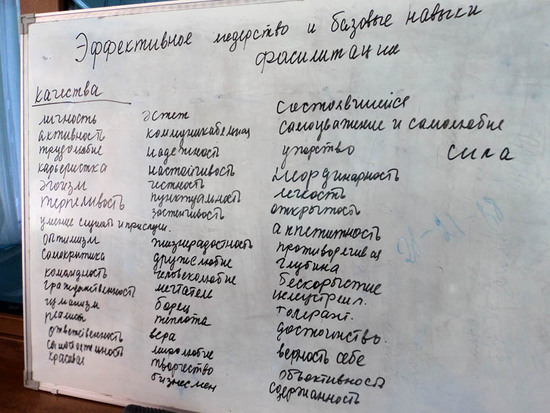 Эффективное лидерство и базовые навыки
фасилитации
Качества
личность
активность
трудолюбие
карьеристка
эгоизм
терпеливость
умение слушать и прислуш.
оптимизм
самокритика
командность
гражданственность
гуманизм
реалист
ответственность
самобытность
красивый
эстет
коммуникабельность
надежность
настойчивость
честность
пунктуальность
застенчивость
жизнерадостность
дружелюбие
человеколюбие
мечтатель
борец
теплота
вера
миролюбие
творчество
бизнесмен
состоявшийся
самоуважение и самолюбие
упорство
сила
неординарность
легкость
открытость
аппетитность
противоречивая
глубина
бескорыстие
целеустрем.
толерант.
достоинство.
верность себе
объективность
содержанность